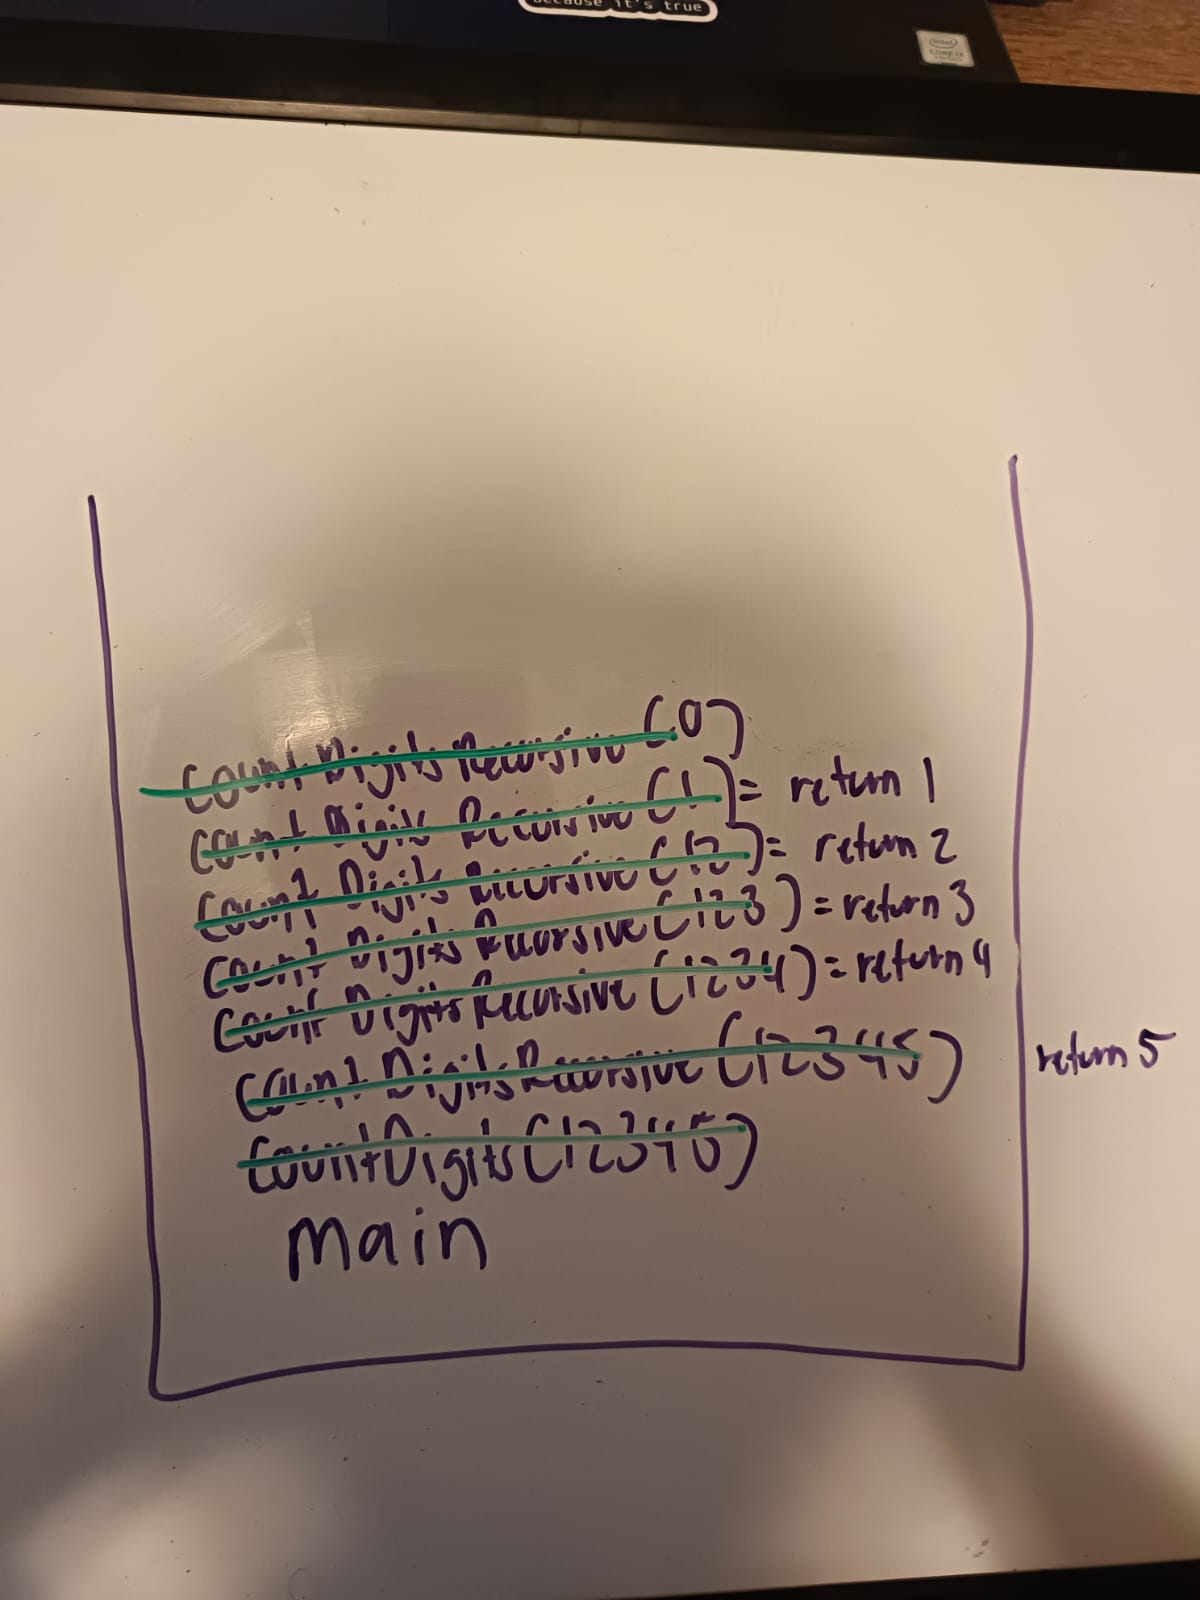 because it's true
intel
CORE i7
CountDigitsRecursive(0)
CountDigitsRecursive(1) = return 1
CountDigitsRecursive(12) = return 2
CountDigitsRecursive(123) = return 3
CountDigitsRecursive(1234) = return 4
CountDigitsRecursive(12345) return 5
CountDigits(12345)
main